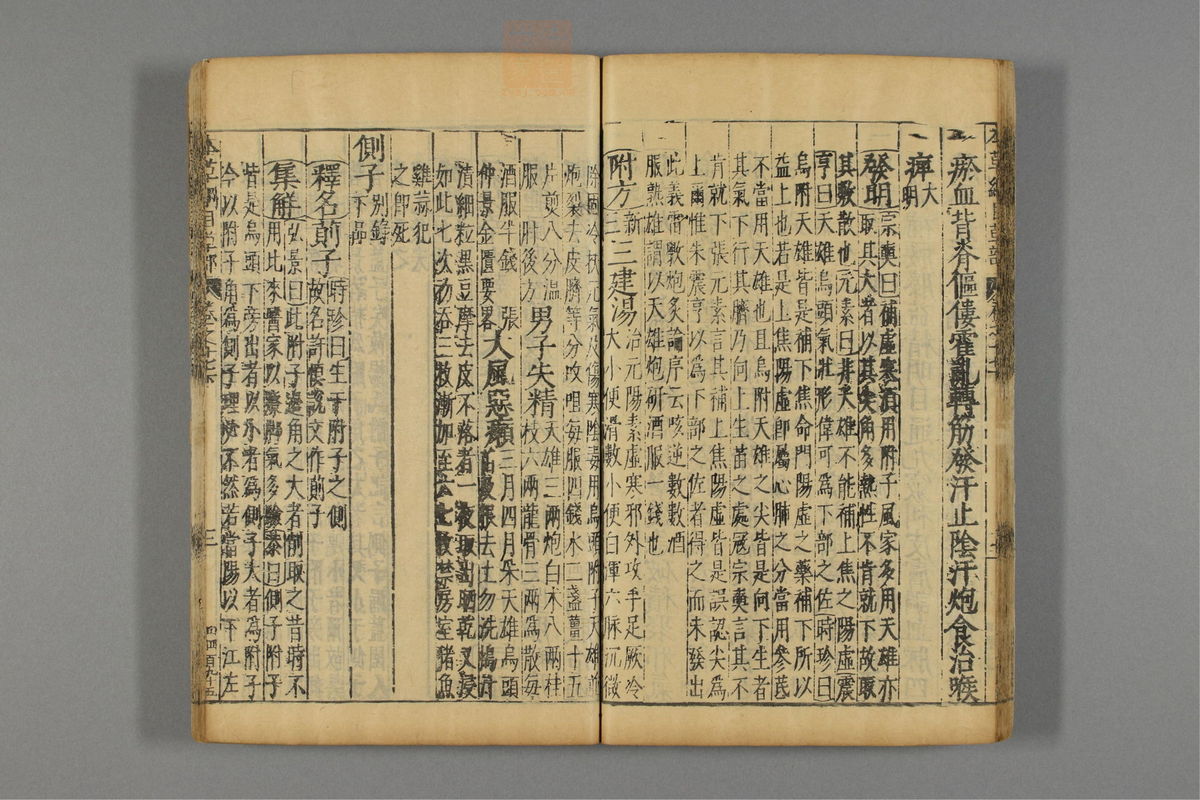 瘀血背脊傴僂霍亂轉筋發汗止陰汗炮食治喉
痺大明
發明宗奭曰補虛寒須用附子風家多用天雄亦
取其大者以其尖角多熱性不肯就下故取
其敷散也元素曰非天雄不能補上焦之陽虛震
亨曰天雄烏頭氣壯形偉可為下部之佐時珍曰
烏附天雄皆是補下焦命門陽虛之藥補下所以
益上也若是上焦陽虛即屬心肺之分當用參芪
不當用天雄也且烏附天雄之尖皆是向下生者
其氣下行其臍乃向上生苗之處寇宗奭言其不
肯就下張元素言其補上焦陽虛皆是誤認尖為
上爾惟朱震亨以為下部之佐者得之而未發出
此義雷斅炮炙論序云咳逆數數酒
服熟雄謂以天雄炮研酒服一錢也
附方新三三建湯治元陽素虛寒邪外攻手足厥冷
大小便滑數小便白渾六脉沉微
除固冷扶元氣及傷寒陰毒用烏頭附子天雄並
炮裂去皮臍等分㕮咀每服四錢水二盞薑十五
片煎八分溫
服肘後方男子失精天雄三兩炮白术八兩桂
枝六兩龍骨三兩為散每
酒服半錢張
仲景金匱要畧大風惡癩三月四月采天雄烏頭
苗及根去土勿洗搗汁
漬細粒黑豆摩去皮不落者一夜取出晒乾又浸
如此七次初吞三枚漸加至六七枚禁房室豬魚
雞蒜犯
之即死
側子别錄下品
釋名萴子時珍曰生于附子之側
故名許慎說文作萴子
集解弘景曰此附子邊角之大者削取之昔時不
用此來醫家以療脚氣多驗恭曰側子附子
皆是烏頭下旁出者以小者為側子大者為附子
今以附子角為側子理必不然若當陽以下江左